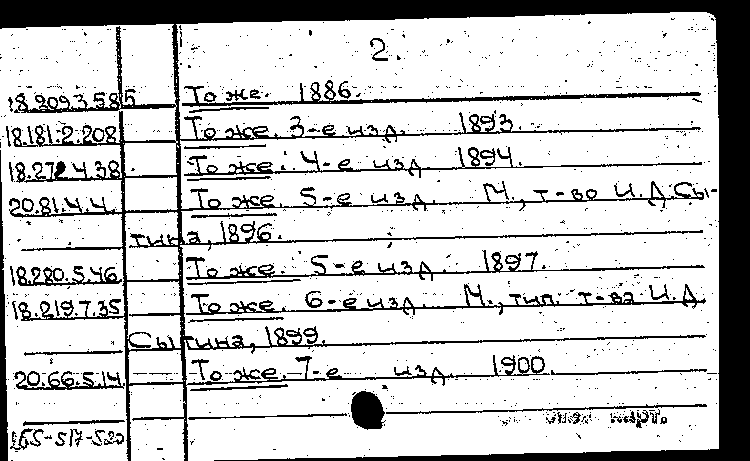 2.
18.209.3.585 То же. 1886.
18.181.2.208 То же. 3-е изд. 1893.
18.272.4.38 То же. 4-е изд 1894.
20.81.4.4. То же. 5-е изд. М., т-во И.Д.Сы-
тина, 1896.
18.280.5.46 То же. 5-е изд. 1897.
18.219.7.35 То же. 6-е изд. М., тип. т-ва И.Д.
Сытина, 1899.
20.66.5.14 То же. 7-е изд. 1900.
карт.
165-517-520